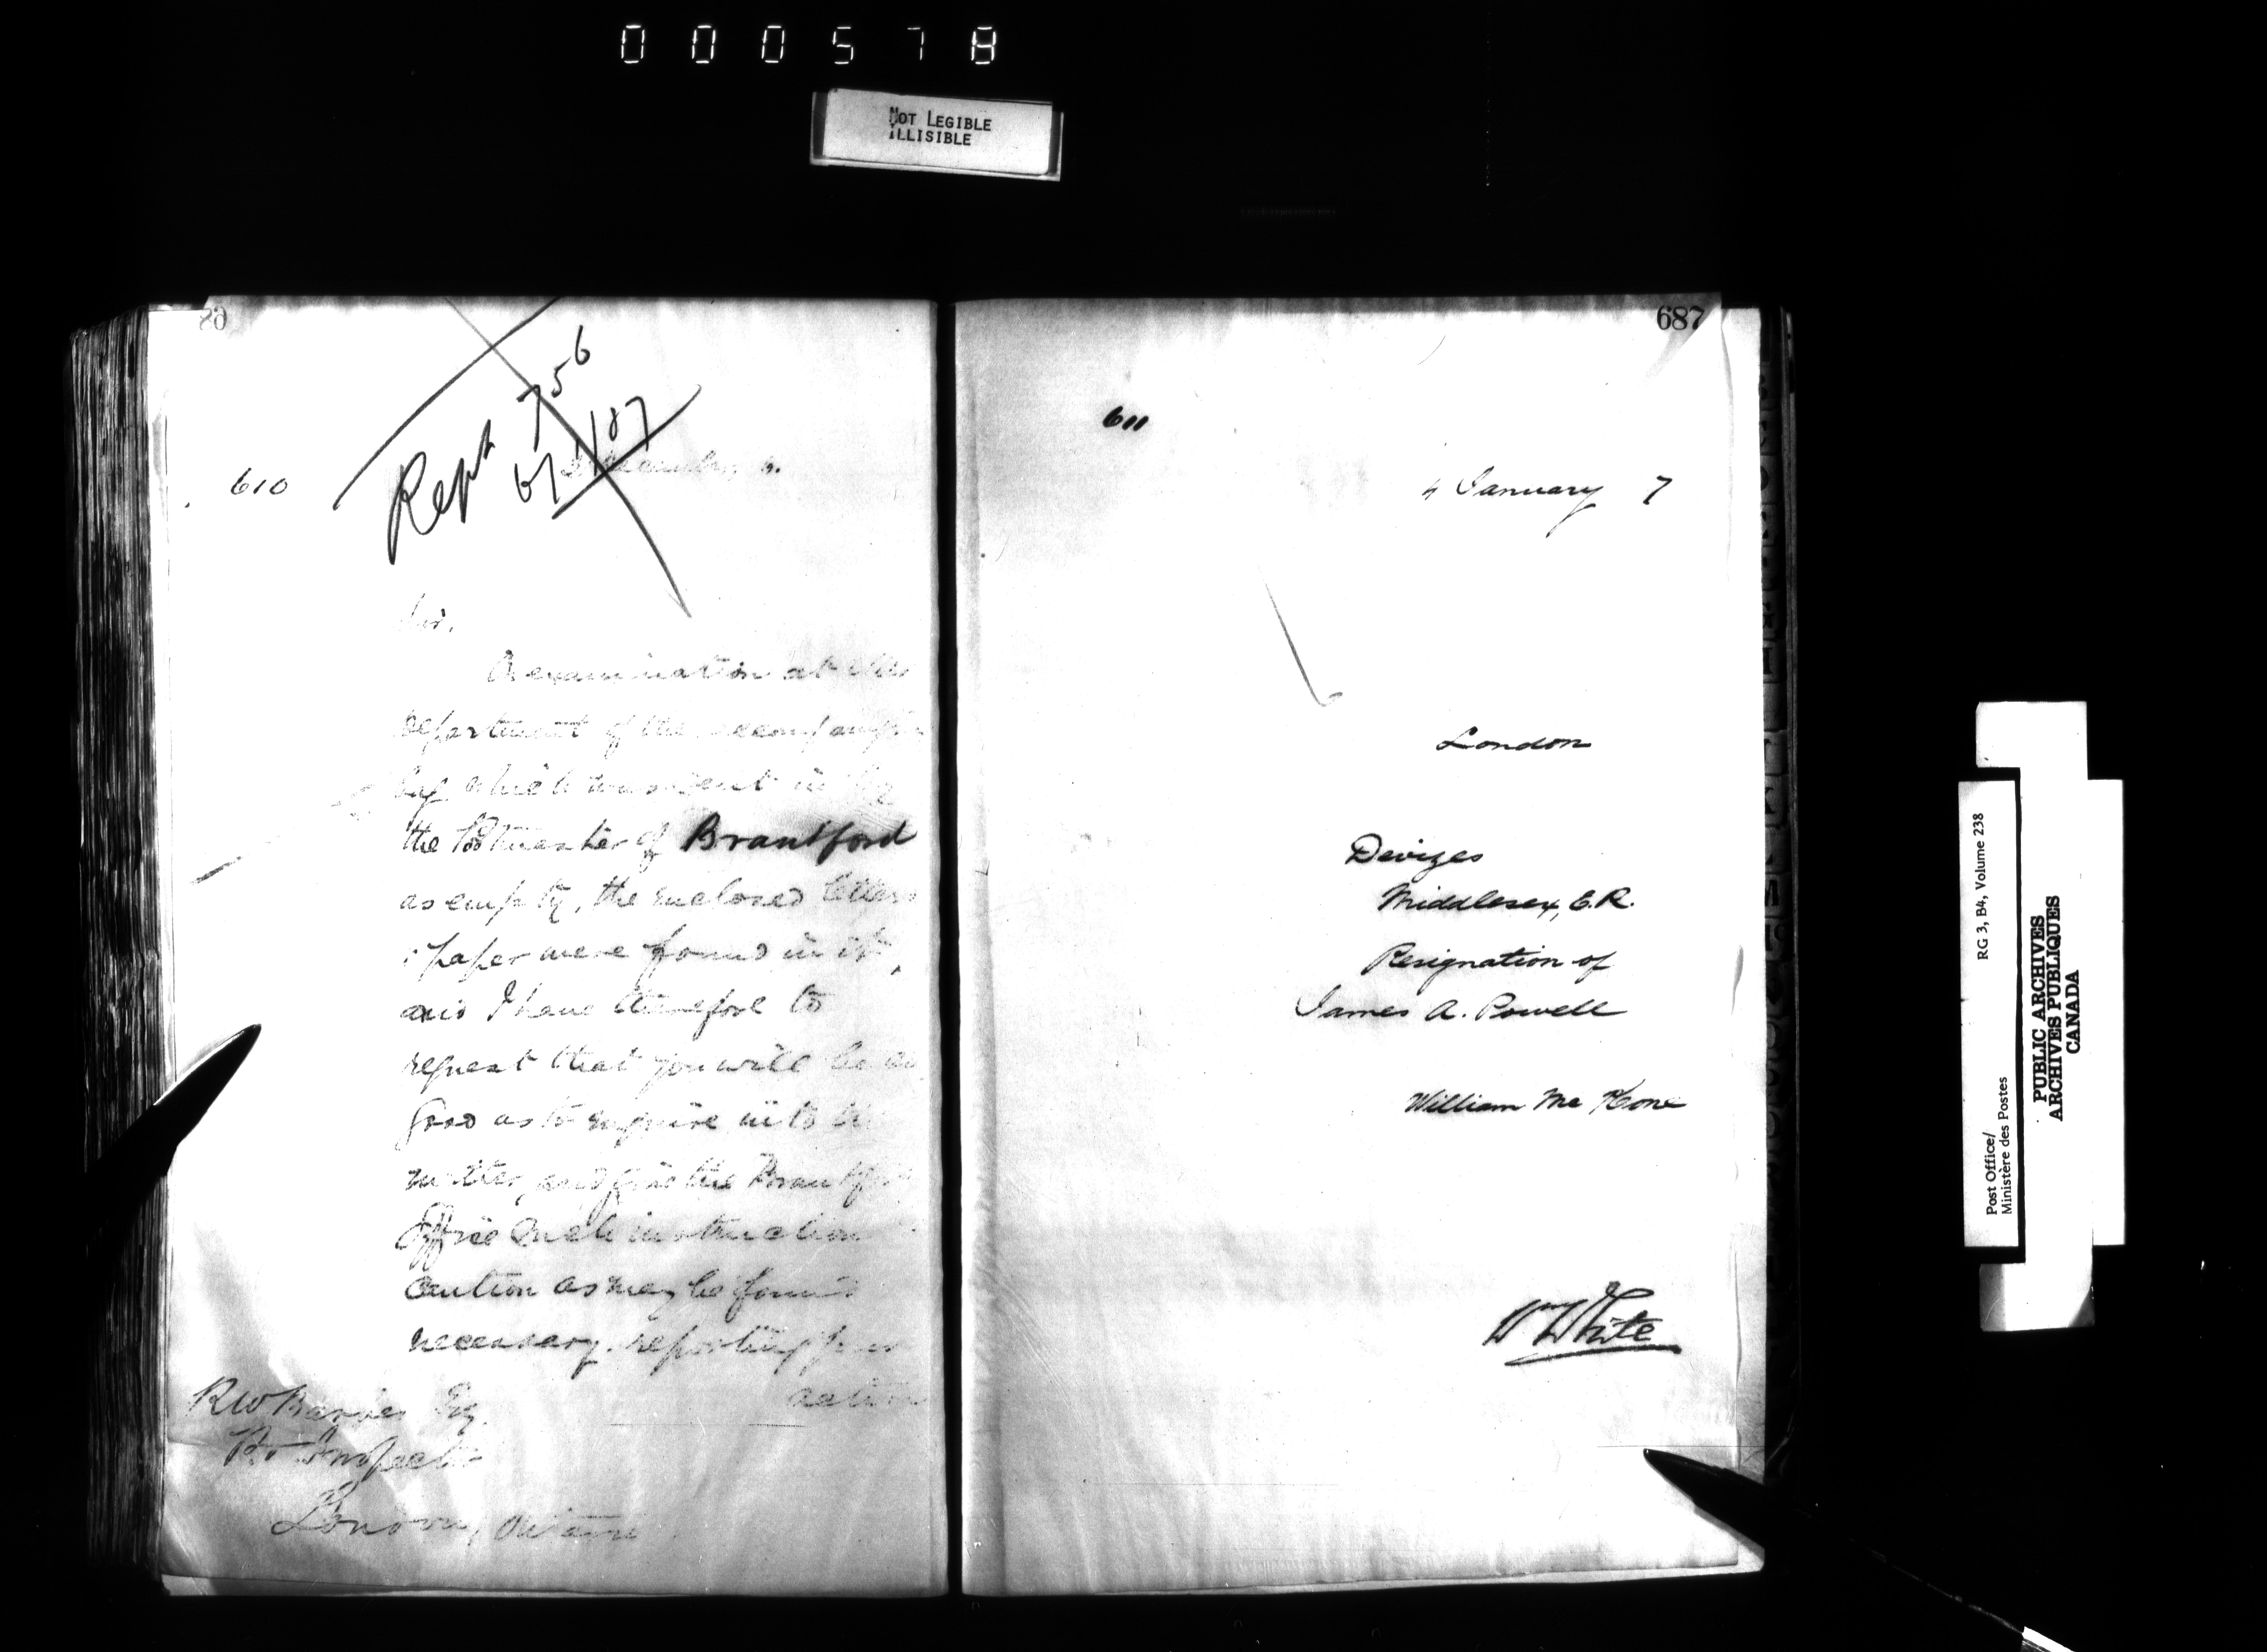 000578
NOT LEGIBLE
ILLISIBLE
610
Rept 756
6/1/87
Sir,
examination at
Department of the
bag which was sent in by
the Postmaster of Brantford
as empty, the enclosed letters
paper were found in it,
and I have therefore to
request that you will be so
good as to enquire into the
matter, and give the Brantford
Office such instruction
caution as may be found
necessary, reporting your
action
RW Barker Esq
P.O. Inspector
London, Ontario
687
611
4 January 7
London
Devizes
Middlesex, E.R.
Resignation of
James A. Powell
William Mc Kone
Wm White
Post Office/
Ministère des Postes
RG 3, B4, Volume 238
PUBLIC ARCHIVES
ARCHIVES PUBLIQUES
CANADA